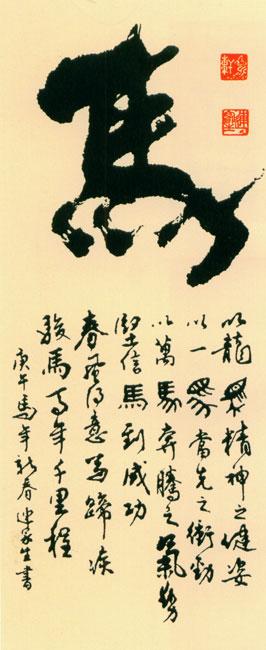 馬
以龍馬精神之健姿
以一馬當先之衝勁
以萬馬奔騰之氣勢
堅信馬到成功
春風得意馬蹄疾
駿馬年千里程
庚午馬年新春連家生書